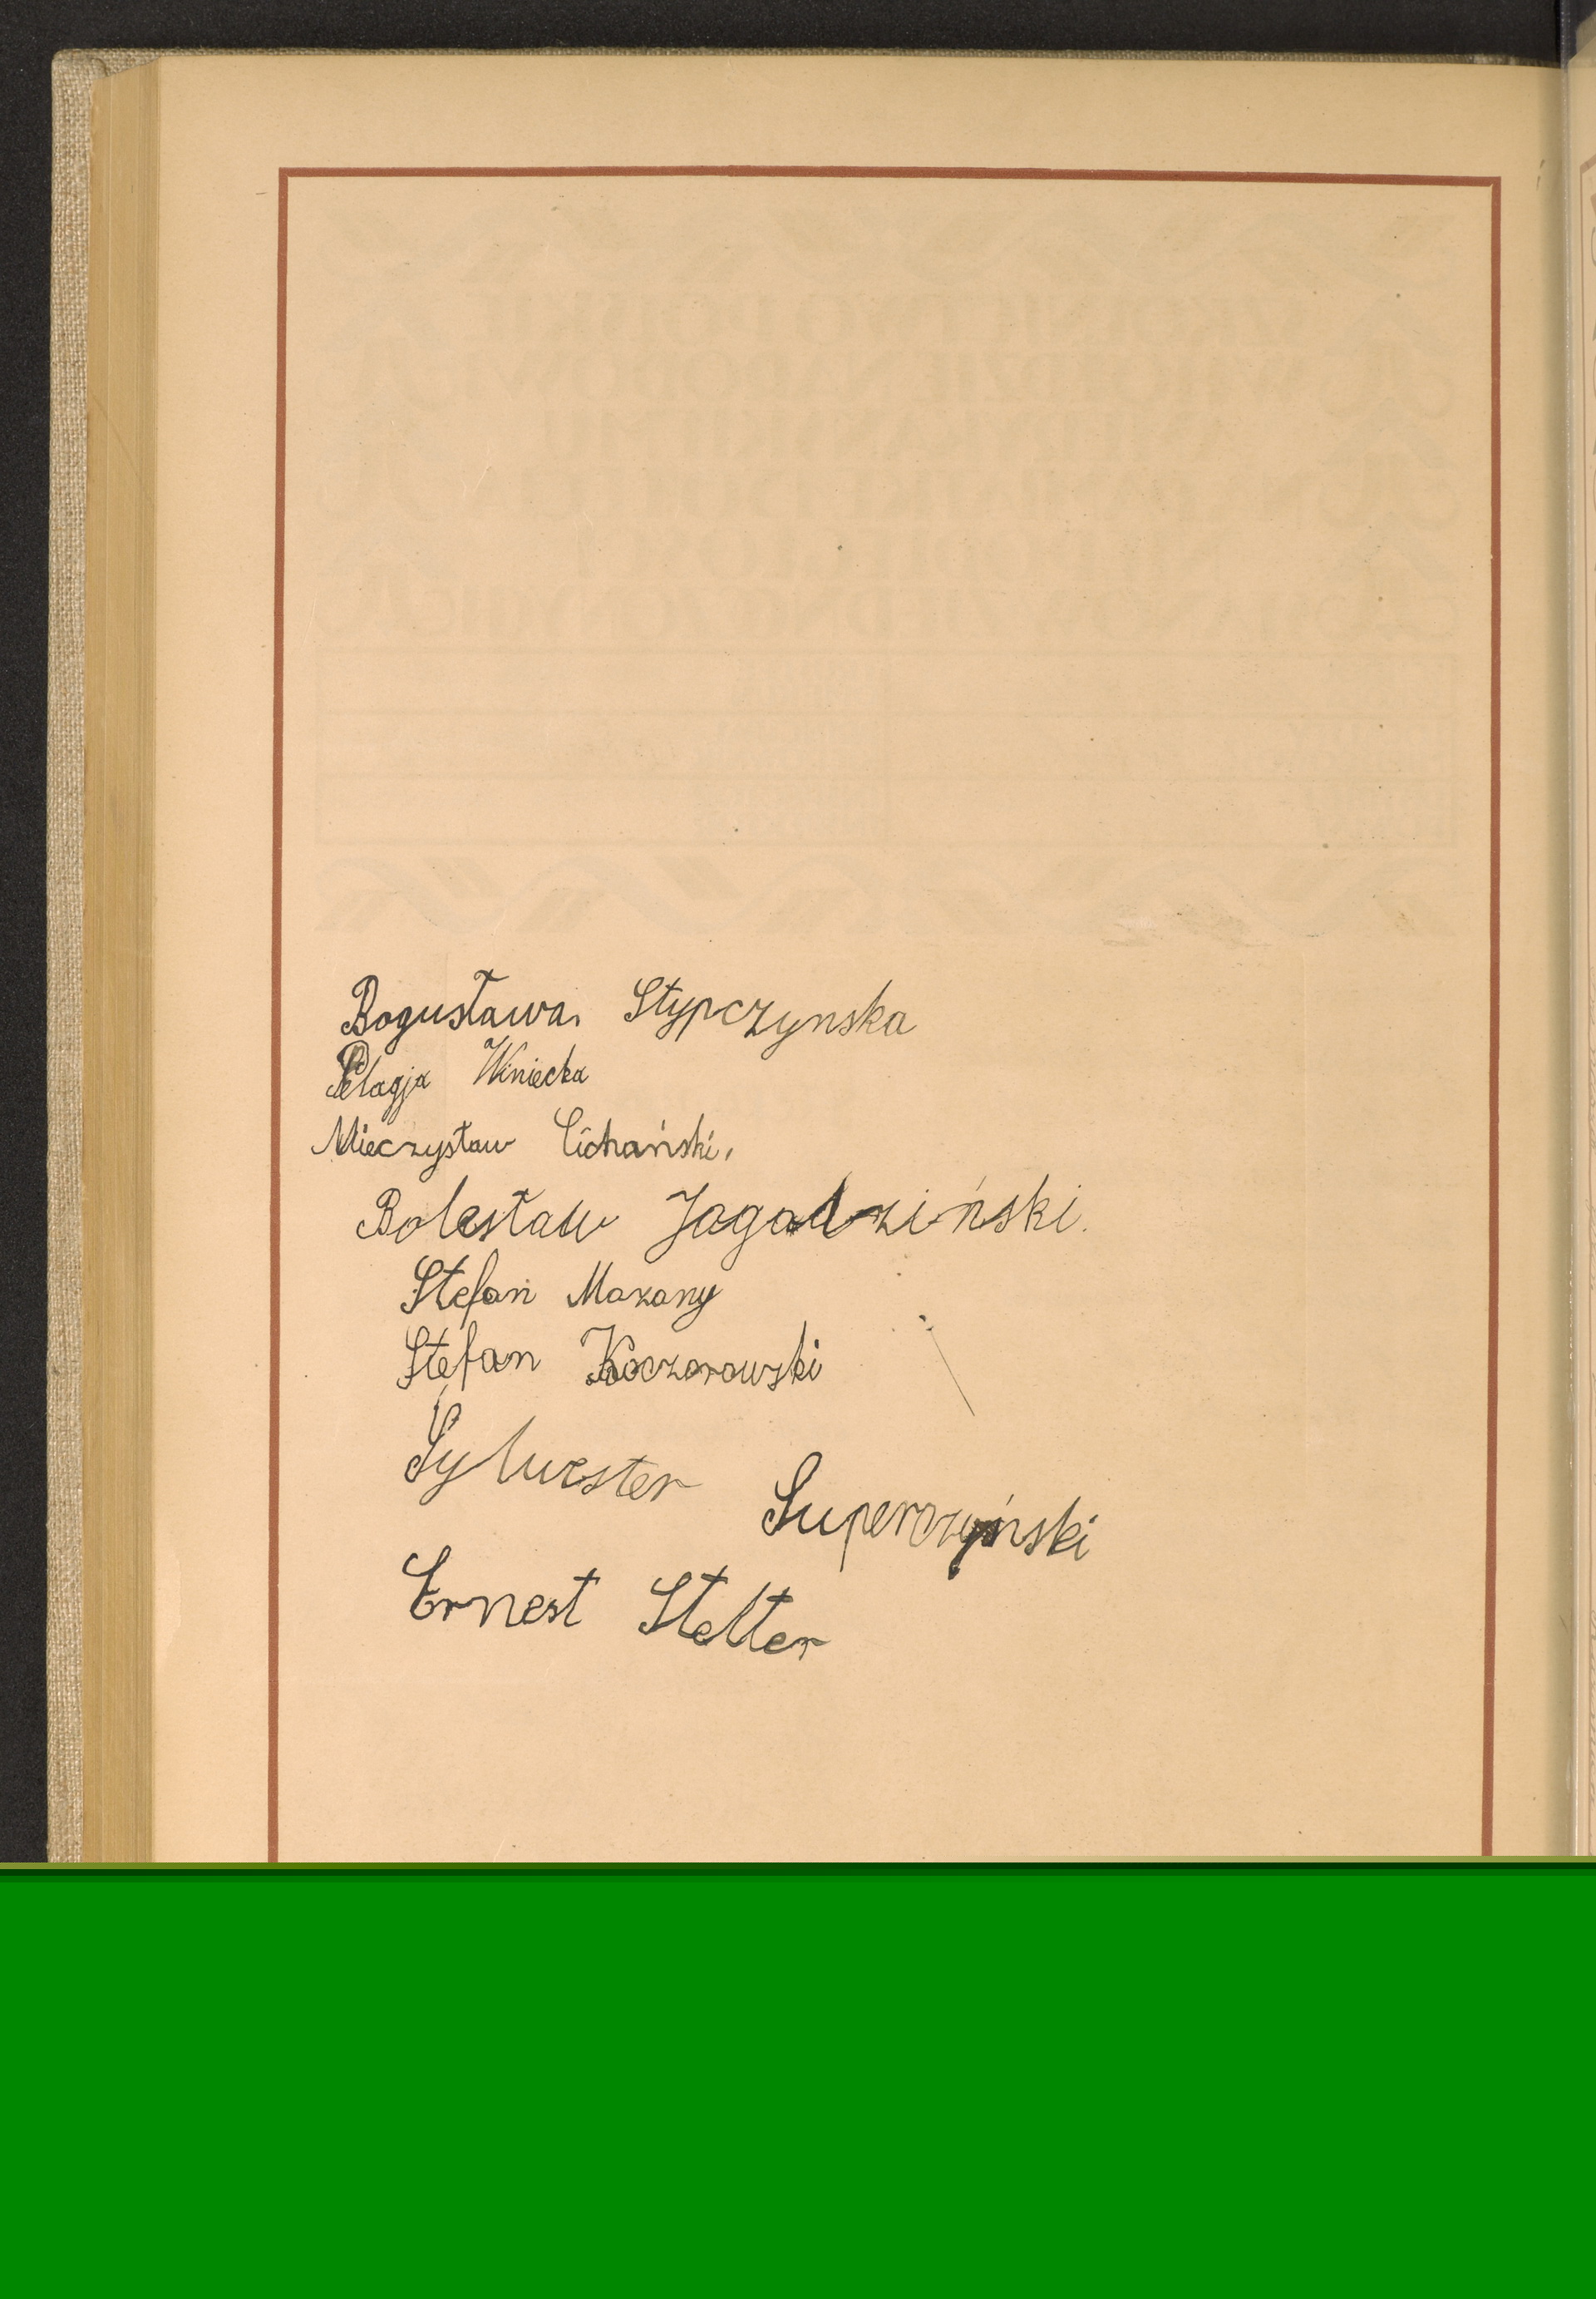 Bogusława Stypczynska
Pelagja Winiecka
Mieczysław Cichański.
Bolesław Jagadziński.
Stefan Mazany
Stefan Koczorowski
Sylwester Superczyński
Ernest Stelter